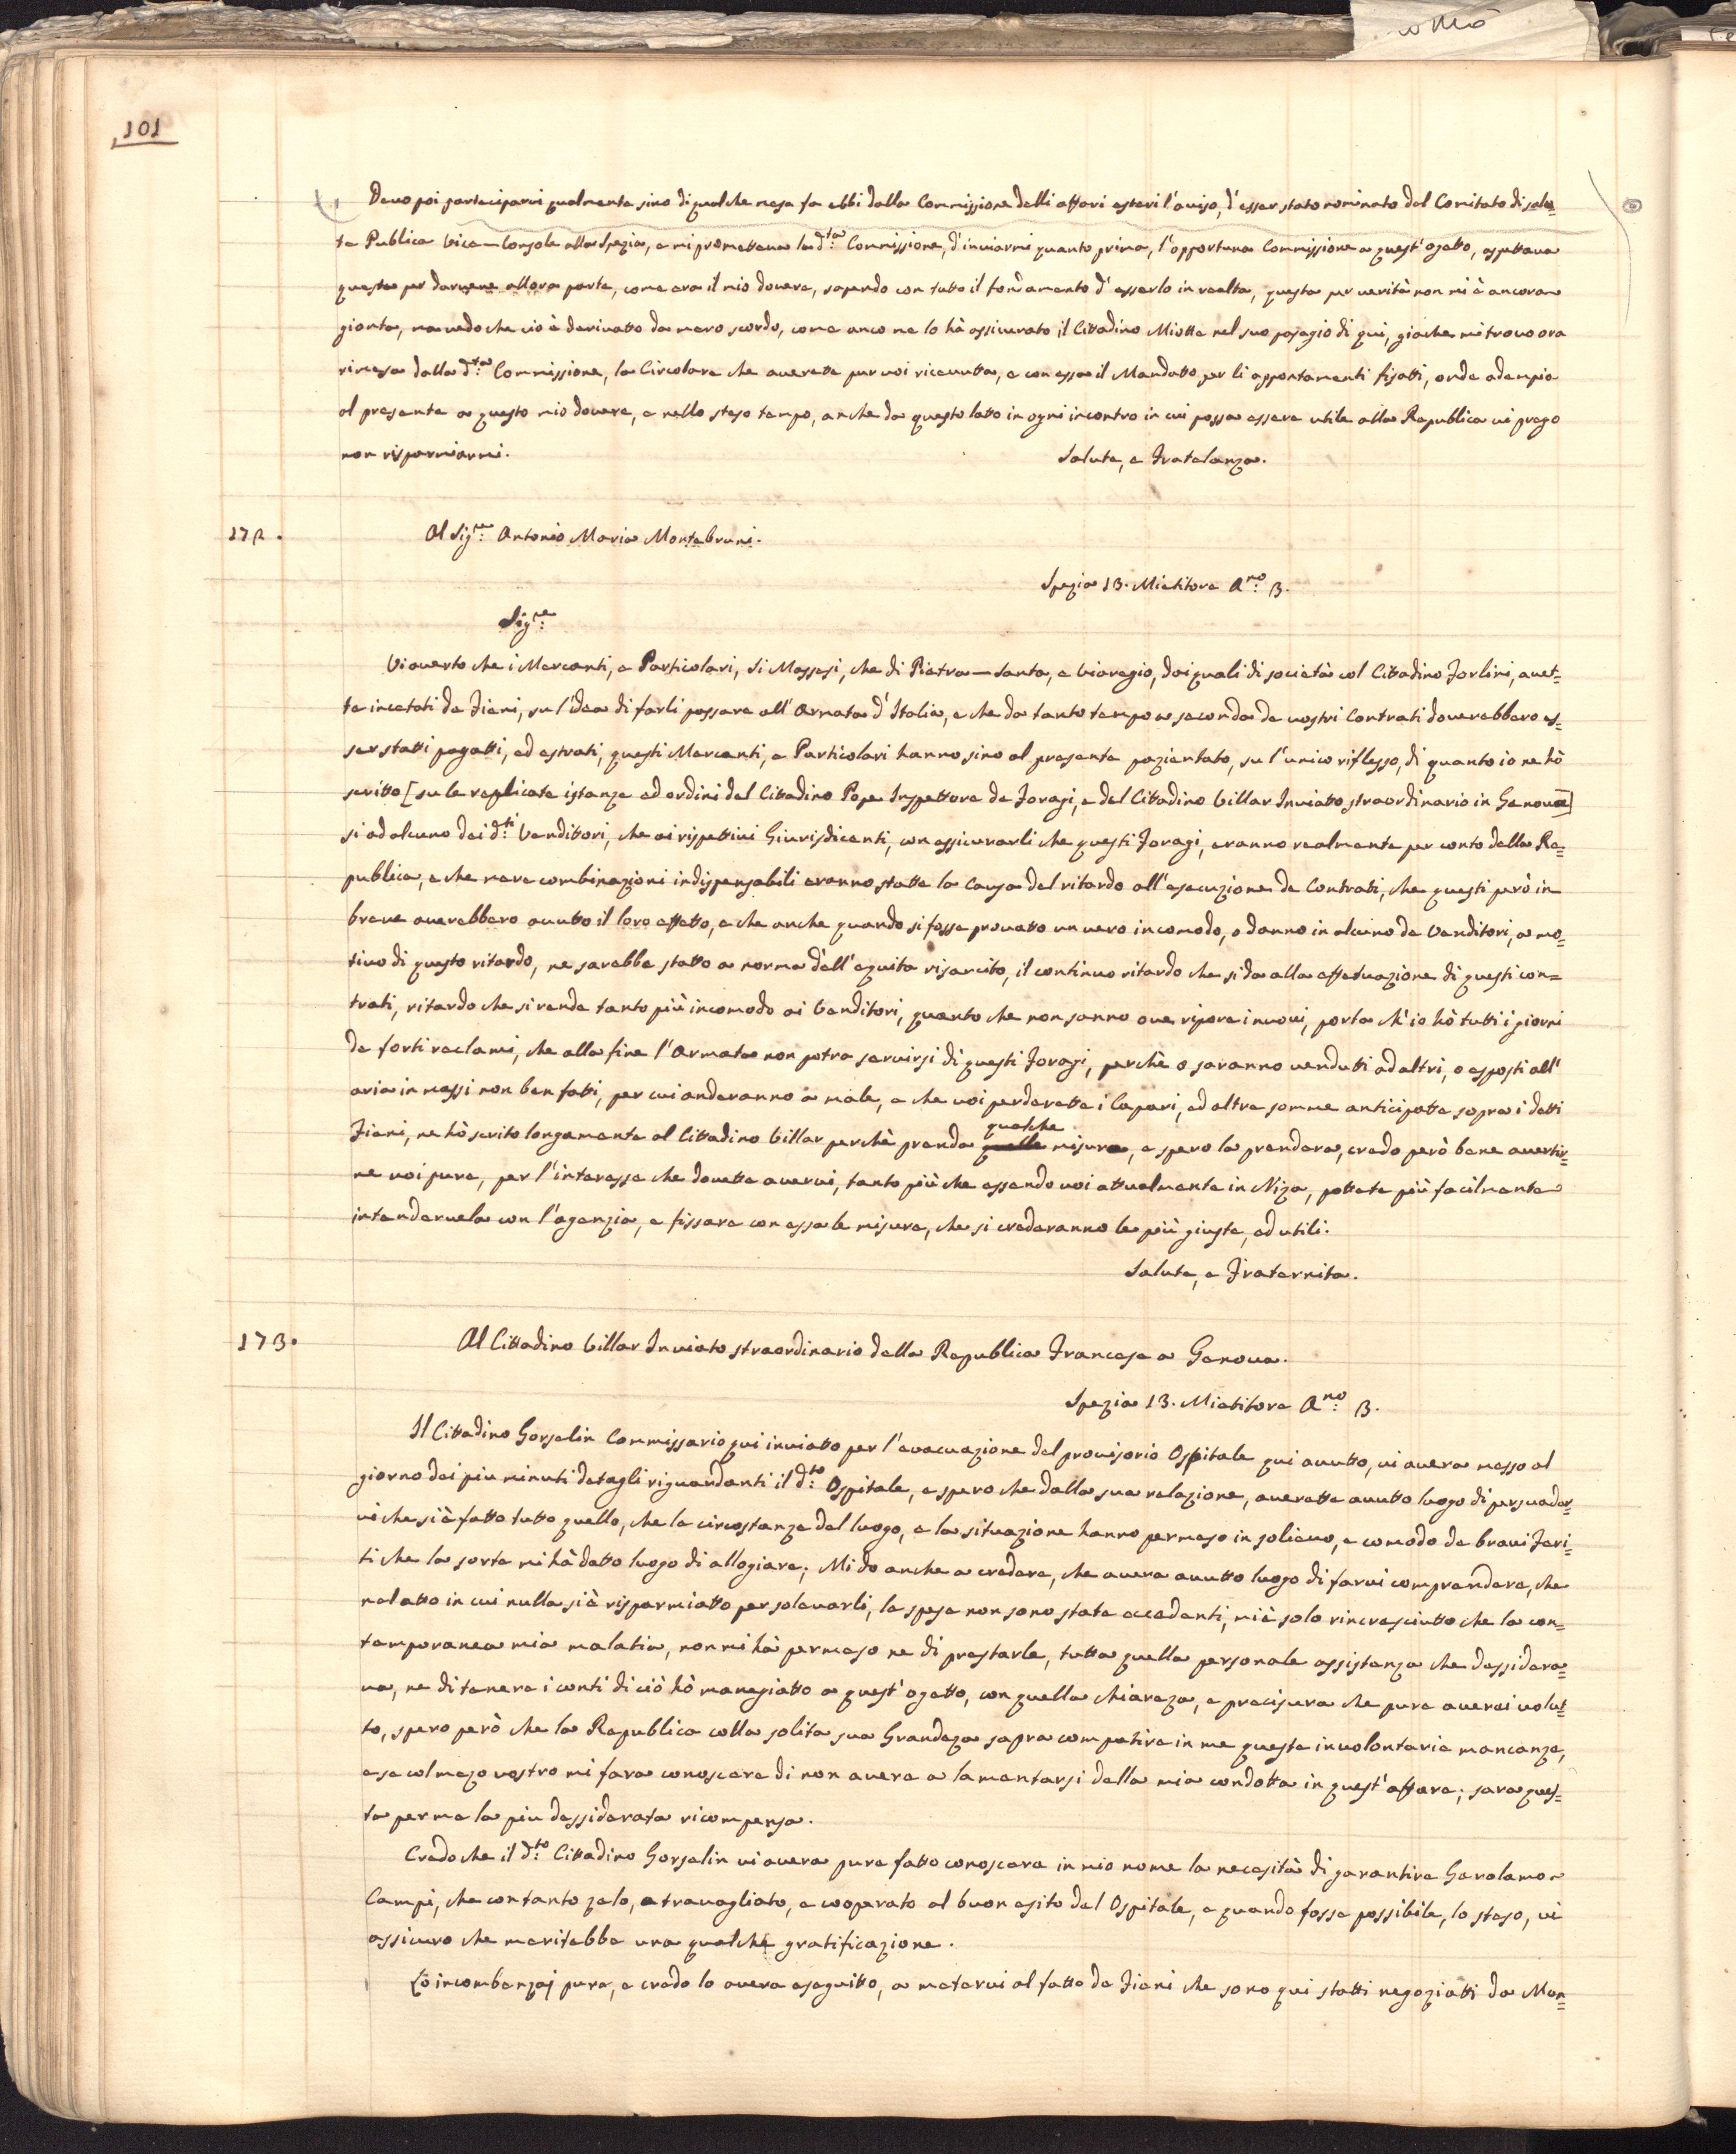 101
Devo poi parteciparvi qualmente sino di qualche mese fa ebbi dalla Commissione delli affari esteri l'aviso, d'esser stato nominato dal Comitato di salu=
te Publica Vice-Console alla Spezia, e mi prometteva la d:ta Commissione, d'inviarmi quanto prima, l'opportuna Commissione a quest'ogetto, aspettava
questa per darvene allora parte, come era il mio dovere, sapendo con tutto il fondamento d'esserlo in realta, questa per verità non mi è ancora
gionta, ma vedo che ciò è derivatto da mero scordo, come anco me lo hà assicurato il Cittadino Miotte nel suo pasagio di qui, gioche mi trovo ora
rimesa dalla d:ta Commissione, la Circolare che averete pur voi ricevutta, e con essa il Mandatto per li appontamenti fisatti, onde adempio
al presente a questo mio dovere, e nello steso tempo, anche da questo latto in ogni incontro in cui possa essere utile alla Republica vi prego
non risparmiarmi. Salute, e Fratelanza.
172. Al Sig:re Antonio Maria Montebruni.
Spezia 13. Mietitore A:no 3.
Sig:re
Vi averto che i Mercanti, e Particolari, si Massesi, che di Pietra-Santa, e Viaregio, dai quali di società col Cittadino Forlini, avet=
te incetati de Fieni, su l'idea di farli passare all'Armata d'Italia, e che da tanto tempo a seconda de vostri Contrati doverebbero es=
ser statti pagatti, ed estrati, questi Mercanti, e Particolari hanno sino al presente pazientato, su l'unico riflesso, di quanto io ne hò
scritto [su le replicate istanze ed ordini del Cittadino Pope Inspettore de Foragi, e del Cittadino Villar Inviatto straordinario in Genova]
si ad alcuno dei d:ti Venditori, che ai rispettivi Giurisdicenti, con assicurarli che questi Foragi, eranno realmente per conto della Re=
publica, e che mere combinazioni indispensabili eranno statte la causa del ritardo all'esecuzione de Contrati, che questi però in
breve averebbero avutto il loro effetto, e che anche quando si fosse provatto un vero incomodo, o danno in alcuno de Venditori, a mo=
tivo di questo ritardo, ne sarebbe statto a norma dell'equita risarcito, il continuo ritardo che si da alla effetuazione di questi con=
trati, ritardo che si rende tanto più incomodo ai Venditori, quanto che non sanno ove ripore i nuovi, porta ch'io hò tutti i giorni
de forti reclami, che alla fine l'Armata non potra servirsi di questi Foragi, perchè o saranno vendutti ad altri, o esposti all'
aria in massi non ben fatti, per cui anderanno a male, e che voi perderette i Capari, ed altre somme anticipatte sopra i detti
Fieni, ne hò scrito longamente al Cittadino Villar perchè prenda qualche misura, e spero la prendera, credo però bene avertir=
ne voi pure, per l'interesse che dovette avervi, tanto più che essendo voi attualmente in Niza, pottete più facilmente
intendervela con l'agenzia, e fissare con essa le misure, che si crederanno le più giuste, ed utili.
Salute, e Fraternita.
173. Al Cittadino Villar Inviato straordinario della Republica Francese a Genova.
Spezia 13. Mietitore A:no 3.
Il Cittadino Gosselin Commissario qui inviatto per l'evacuazione del provisorio Ospitale qui avutto, vi avera messo al
giorno dei piu minuti detagli riguardanti il d:to Ospitale, e spero che dalla sua relazione, averette avutto luogo di persuader=
vi che si è fatto tutto quello, che le circostanze del luogo, e la situazione hanno permeso in solievo, e comodo de bravi Feri=
ti che la sorte mi hà datto luogo di allogiare; Mi do anche a credere, che avera avutto luogo di farvi comprendere, che
nel atto in cui nulla si è risparmiatto per solevarli, le spese non sono state eccedenti, mi è solo rincresciutto che la con=
temporanea mia malatia, non mi hà permeso ne di prestarle, tutta quella personale assistenza che dessidera=
va, ne di tenere i conti di ciò hò manegiatto a quest'ogetto, con quella chiareza, e precisura che pure averei volut=
to, spero però che la Republica colla solita sua Grandeza sapra compatire in me queste involontarie mancanze,
e se col mezo vostro mi fara conoscere di non avere a lamentarsi della mia condotta in quest'affare; sara ques=
ta per me la piu dessiderata ricompensa.
Credo che il d:to Cittadino Gosselin vi avera pure fatto conoscere in mio nome la necesità di garantire Gerolamo
Campi, che con tanto zelo, a travagliato, e cooperato al buon esito del Ospitale, e quando fosse possibile, lo steso, vi
assicuro che meritebbe una qualche gratificazione.
Lo incombenzai pure, e credo lo avera eseguitto, a metervi al fatto de Fieni che sono qui statti negoziatti da Mon=